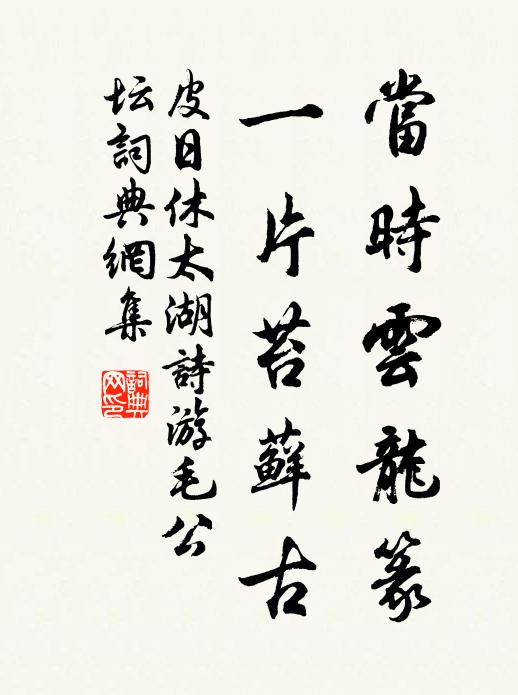 當時雲龍篆
一片苔蘚古
皮日休太湖詩游毛公
坛詞典網集
詞典网印